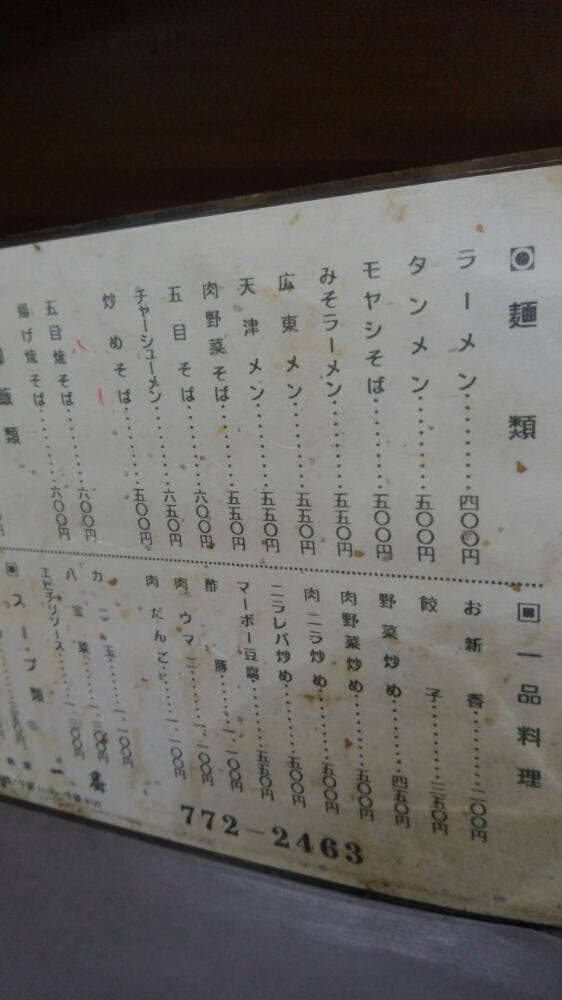 麺類
ラーメン………四〇〇円
タンメン………五〇〇円
モヤシそば………五〇〇円
みそラーメン………五五〇円
広東メン………五五〇円
天津メン………五五〇円
肉野菜そば………五五〇円
五目そば………六〇〇円
チャーシューメン………六五〇円
炒めそば………五〇〇円
五目焼そば………六〇〇円
揚げ焼そば………六〇〇円
飯類
一品料理
お新香………二〇〇円
餃子………三五〇円
野菜炒め………四五〇円
肉野菜炒め………五〇〇円
肉ニラ炒め………五〇〇円
ニラレバ炒め………五〇〇円
マーボー豆腐………五五〇円
酢豚………一、一〇〇円
肉ウマニ………一、一〇〇円
肉だんご………一、一〇〇円
カニ玉………一、一〇〇円
八宝菜………一、三〇〇円
エビチリソース………一、三〇〇円
スープ類
一番
772-2463